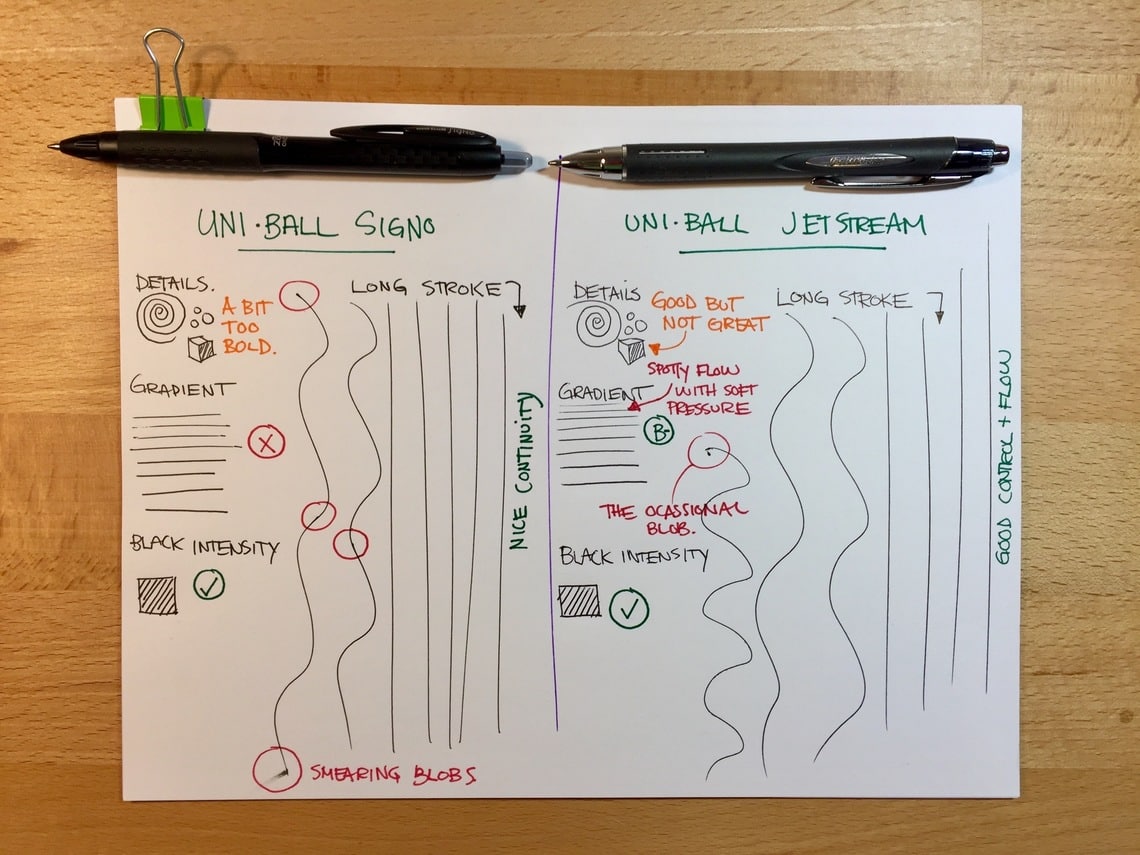 SIGNO
UNI·BALL SIGNO
DETAILS.
A BIT
TOO
BOLD.
LONG STROKE
GRADIENT
X
NICE CONTINUITY
BLACK INTENSITY
SMEARING BLOBS
UNI·BALL JETSTREAM
DETAILS
GOOD BUT
NOT GREAT
LONG STROKE
SPOTTY FLOW
WITH SOFT
PRESSURE
GRADIENT
B-
THE OCASSIONAL
BLOB.
BLACK INTENSITY
GOOD CONTROL + FLOW